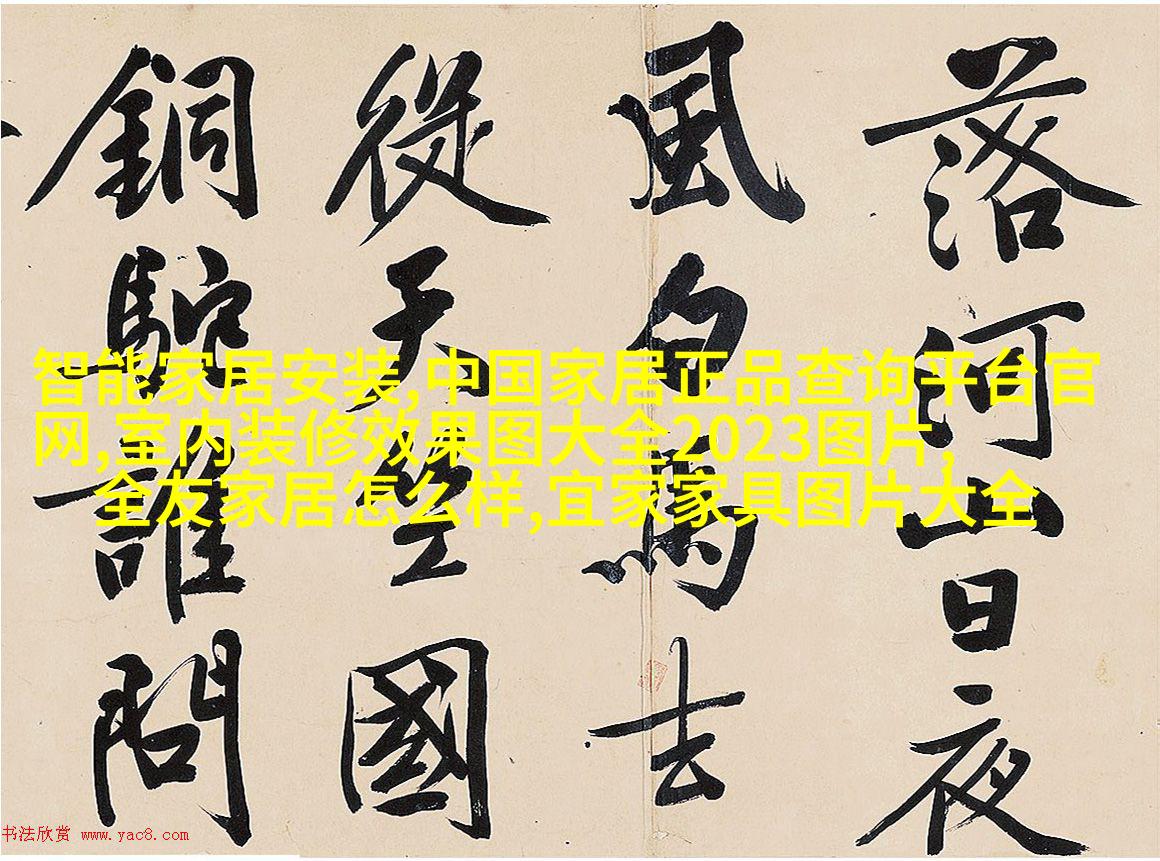 落河山日夜
風白馬去
從天竺國
銅駝誰問
智能家居安装,中国家居正品查询平台官
网,室内装修效果图大全2023图片,
全友家居怎么样,宜家家具图片大全
书法欣赏 www.yac8.com